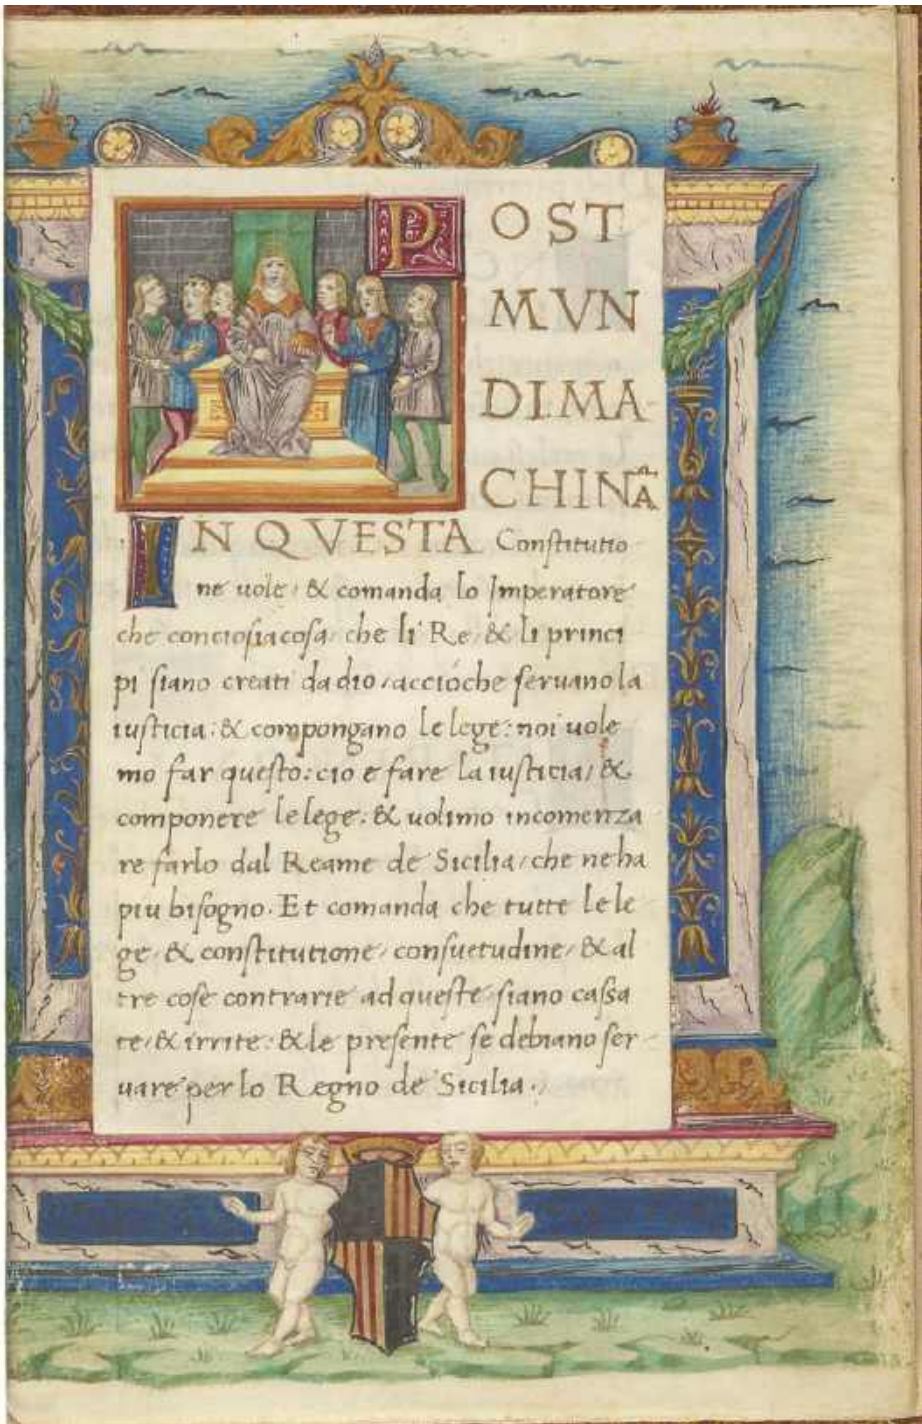 POST
MVN
DI MA-
CHINÃ
IN QVESTA Constitutio
ne uole, & comanda lo Imperatore
che conciosiacosa, che li Re, & li princi
pi siano creati da dio, acciòche seruano la
iusticia: & compongano le lege: noi uole
mo far questo: cio e fare la iusticia, &
componere le lege: & uolimo incomenza
re farlo dal Reame de Sicilia, che ne ha
piu bisogno. Et comanda che tutte le le
ge, & constitutione, consuetudine, & al
tre cose contrarie ad queste siano cassa
te, & irrite: & le presente se debiano ser
uare per lo Regno de Sicilia.